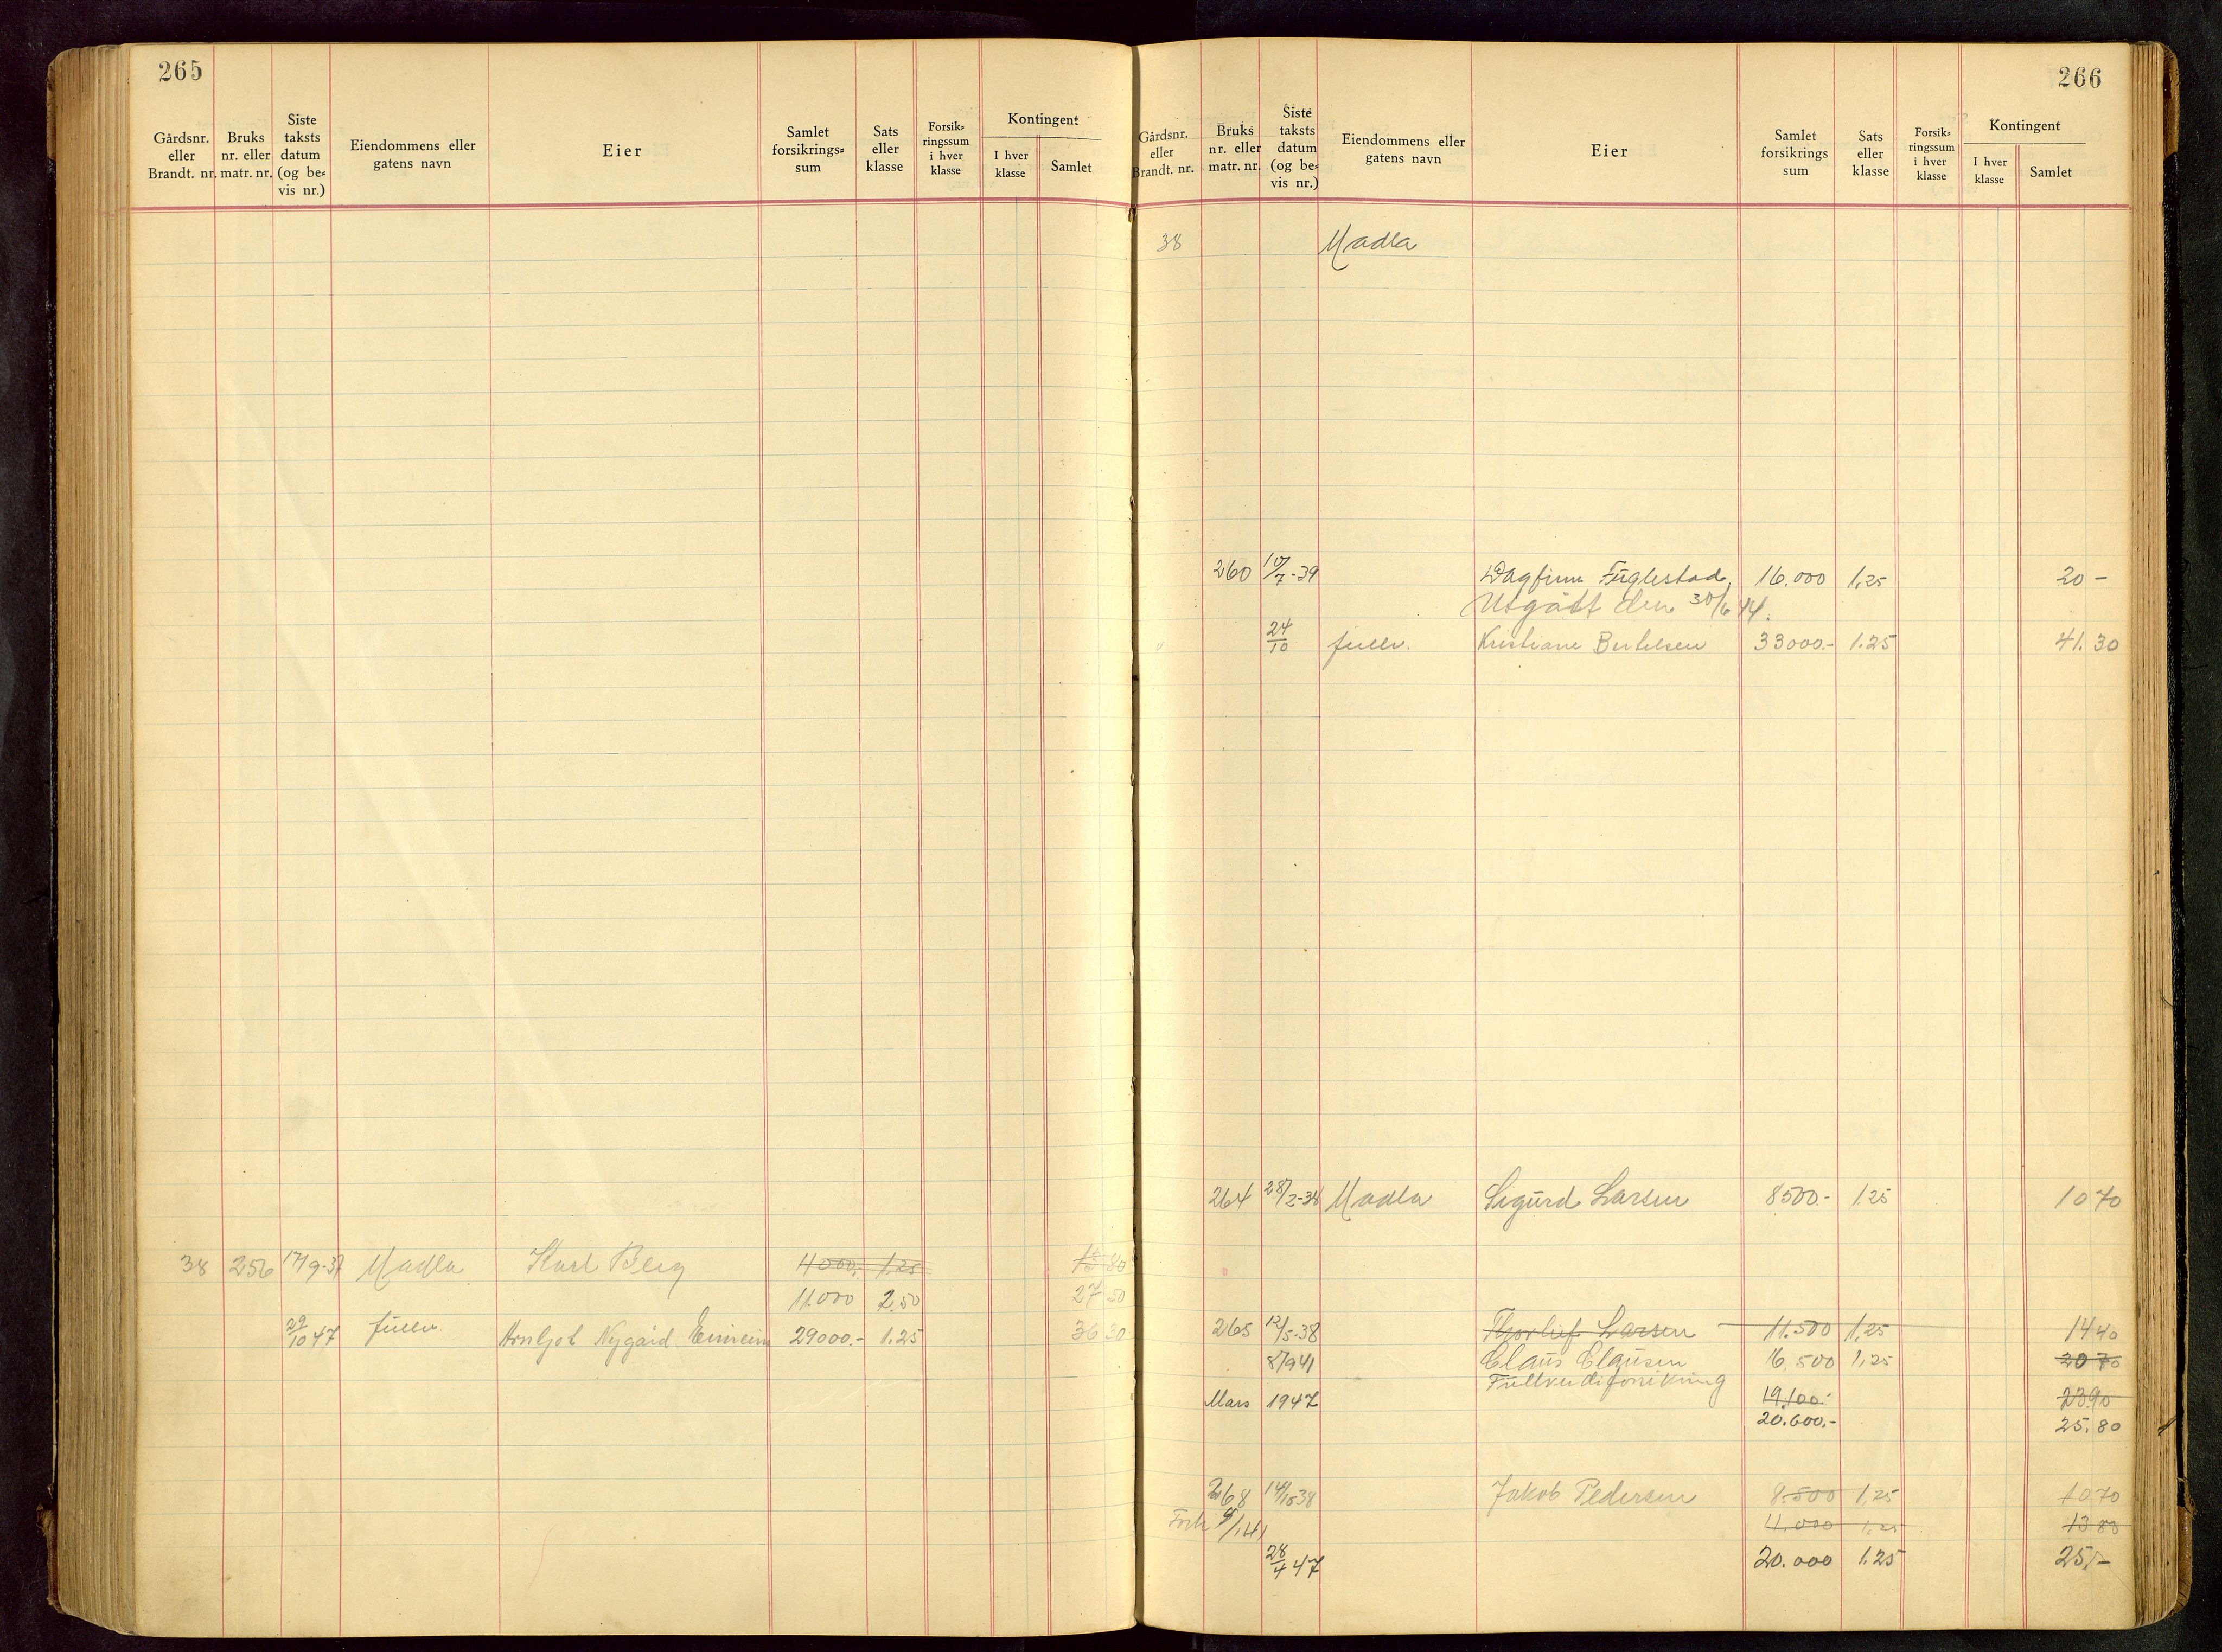 265
Gårdsnr. eller Brandt. nr. Bruks nr. eller matr. nr. Siste taksts datum (og be= vis nr.) Eiendommens eller gatens navn Eier Samlet forsikrings= sum Sats eller klasse Forsik= ringssum i hver klasse Kontingent I hver klasse Samlet
38 256 17/9-37 Madla Karl Berg 4000.- 1.25 80
11.000 2.50 27 50
29/10 47 fullv. Arnljot Nygård Einreim 29000.- 1.25 36 30
266
Gårdsnr. eller Brandt. nr. Bruks nr. eller matr. nr. Siste taksts datum (og be= vis nr.) Eiendommens eller gatens navn Eier Samlet forsikrings sum Sats eller klasse Forsik= ringssum i hver klasse Kontingent I hver klasse Samlet
38 Madla
260 10/7-39 Dagfinn Fuglestad 16.000 1,25 20 -
Utgått den 30/6 44.
24/10 fullv. Kristiane Bertelsen 33000.- 1.25 41.30
264 28/2-38 Madla Sigurd Larsen 8500.- 1.25 10 70
265 12/5-38 Thorleif Larsen 11.500 1,25 14 40
8/9 41 Claus Clausen 16.500 1,25 20 70
Fullverdiforsikring
Mars 1947 19.100.- 23.90
20.600.- 25.80
268 14/10 38 Jakob Pedersen 8.500 1,25 10 70
11.000 1,25 13 80
28/4 47 20.000 1.25 25,-